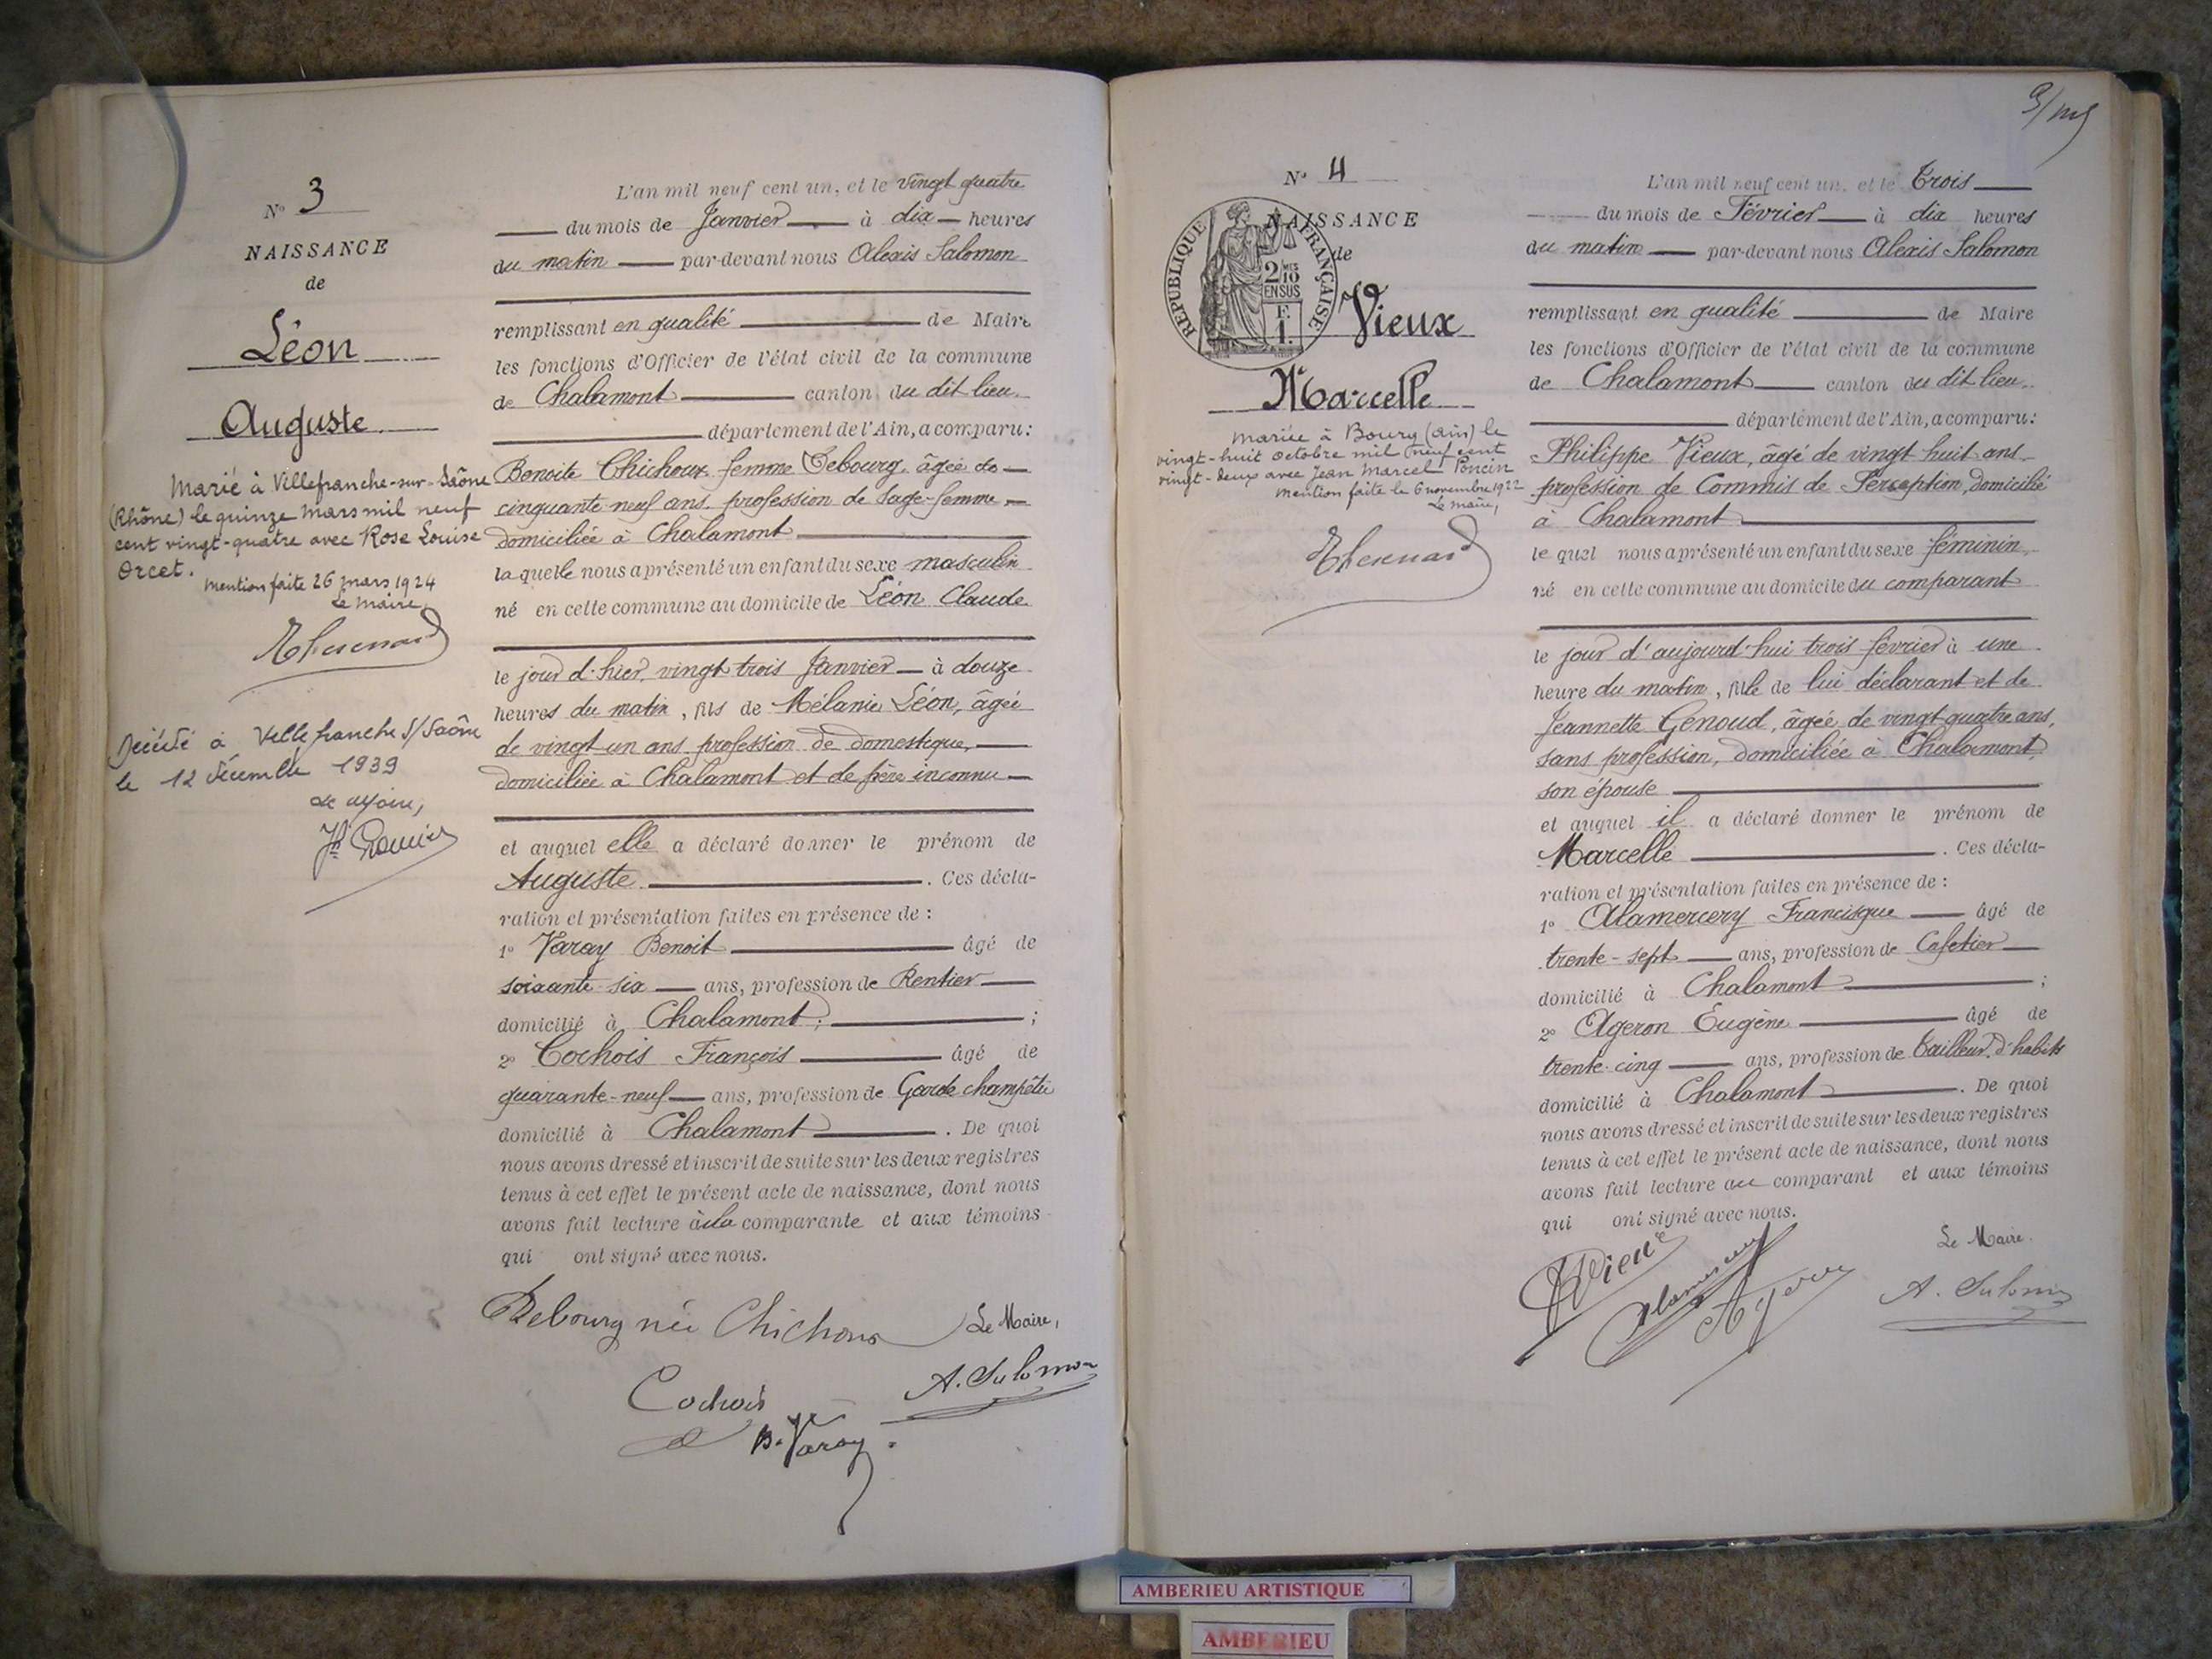 N° 3
NAISSANCE
de
Léon
Auguste
Marié à Villefranche-sur-Saône
(Rhône) le quinze mars mil neuf
cent vingt-quatre avec Rose Louise
Orcet.
Mention faite 26 mars 1924
Le Maire,
Décédé à Villefranche s/Saône
le 12 décembre 1939
Le Maire,
L'an mil neuf cent un, et le vingt quatre
du mois de Janvier à dix heures
du matin par-devant nous Alexis Salomon
remplissant en qualité de Maire
les fonctions d'Officier de l'état civil de la commune
de Chalamont canton du dit lieu.
département de l'Ain, a comparu:
Benoite Chichoux femme Debourg, âgée de
cinquante-neuf ans, profession de Sage-femme
domiciliée à Chalamont
laquelle nous a présenté un enfant du sexe masculin
né en cette commune au domicile de Léon Claude
le jour d'hier, vingt trois Janvier à douze
heures du matin, fils de Mélanie Léon, âgée
de vingt un ans profession de domestique,
domiciliée à Chalamont et de père inconnu
et auquel elle a déclaré donner le prénom de
Auguste. Ces décla-
ration et présentation faites en présence de :
1° Varay Benoit âgé de
soixante-six ans, profession de Rentier
domicilié à Chalamont; ;
2° Cochois François âgé de
quarante-neuf ans, profession de Garde champêtre
domicilié à Chalamont. De quoi
nous avons dressé et inscrit de suite sur les deux registres
tenus à cet effet le présent acte de naissance, dont nous
avons fait lecture à la comparante et aux témoins
qui ont signé avec nous.
Debourg née Chichoux Le Maire,
Cochois A. Salomon
B. Varay
9/
N° 4
NAISSANCE
de
REPUBLIQUE FRANÇAISE
2/10 MES
EN SUS
F.
1.
Vieux
Marcelle
Mariée à Bourg (Ain) le
vingt-huit octobre mil neuf cent
vingt-deux avec Jean Marcel Poncin
Mention faite le 6 novembre 1922
Le Maire,
L'an mil neuf cent un, et le Trois
du mois de Février à dix heures
du matin par-devant nous Alexis Salomon
remplissant en qualité de Maire
les fonctions d'Officier de l'état civil de la commune
de Chalamont canton du dit lieu.
département de l'Ain, a comparu:
Philippe Vieux, âgé de vingt huit ans
profession de Commis de Perception, domicilié
à Chalamont
le quel nous a présenté un enfant du sexe féminin
né en cette commune au domicile du comparant
le jour d'aujourd'hui trois février à une
heure du matin, fille de lui déclarant et de
Jeannette Genoud, âgée de vingt quatre ans,
sans profession, domiciliée à Chalamont,
son épouse
et auquel il a déclaré donner le prénom de
Marcelle. Ces décla-
ration et présentation faites en présence de :
1° Alamercery Francisque âgé de
trente-sept ans, profession de Cafetier
domicilié à Chalamont ;
2° Ageron Eugène âgé de
trente-cinq ans, profession de tailleur d'habits
domicilié à Chalamont. De quoi
nous avons dressé et inscrit de suite sur les deux registres
tenus à cet effet le présent acte de naissance, dont nous
avons fait lecture au comparant et aux témoins
qui ont signé avec nous.
Le Maire.
Vieux Alamercery Ageron A. Salomon
AMBERIEU ARTISTIQUE
AMBERIEU